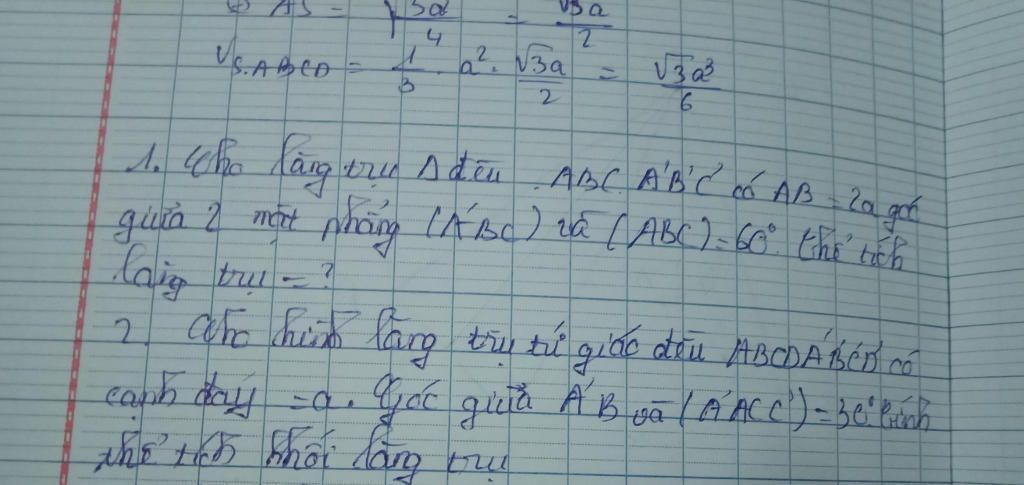 AS = √3a/4 = √3a/2
VS.ABCD = 1/3 . a² . √3a/2 = √3a³/6
1. Cho lăng trụ Δ đều . ABC. A'B'C' có AB = 2a góc
giữa 2 mặt phẳng (A'BC) và (ABC) = 60° thể tích
lăng trụ = ?
2. Cho hình lăng trụ tứ giác đều ABCDA'B'C'D' có
cạnh đáy = a. Góc giữa A'B và (A'ACC') = 30° tính
thể tích khối lăng trụ